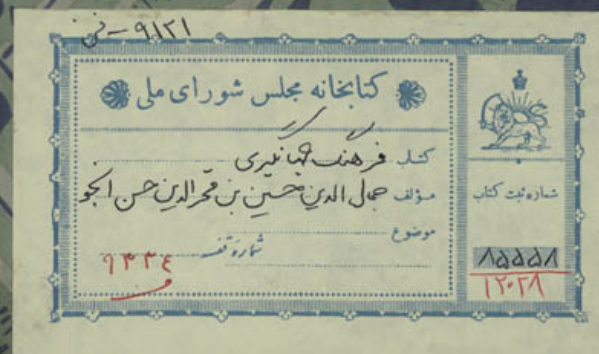 ۹۱۲۱ - فی
کتابخانه مجلس شورای ملی
کتاب فرهنگ جهانگیری
مؤلف جمال الدین حسین بن فخرالدین حسن انجو
موضوع
شماره قفسه
۹۳۳۴
شماره ثبت کتاب
۸۵۵۵۸
۱۲۰۲۸